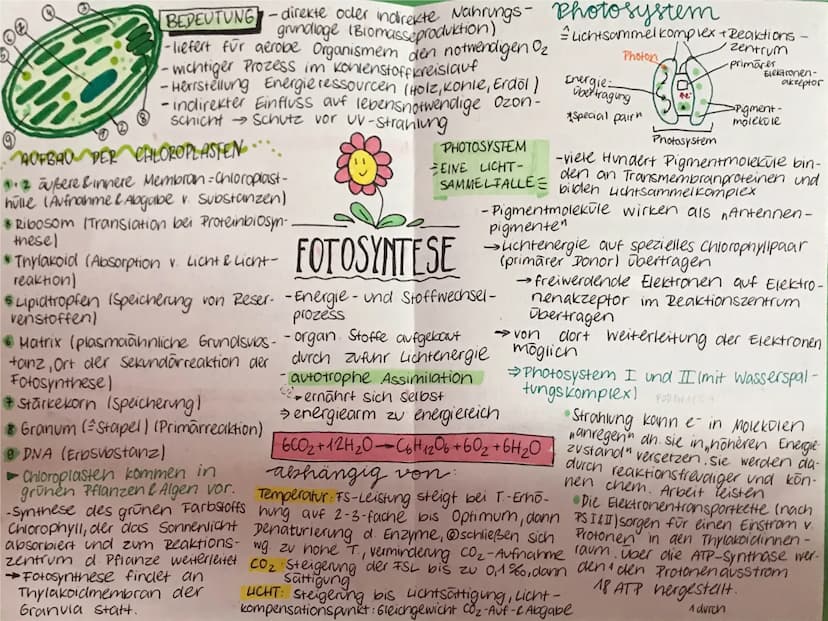 BEDEUTUNG - direkte oder indirekte Nahrungs-
grundlage (Biomasseproduktion)
- liefert für aerobe Organismem den notwendigen O₂
- wichtiger Prozess im Kohlenstoffkreislauf
- Herstellung Energieressourcen (Holz, Kohle, Erdöl)
- indirekter Einfluss auf lebensnotwendige Ozon-
schicht → Schutz vor UV-Strahlung
AUFBAU DER CHLOROPLASTEN
1+2 äußere & innere Membran-Chloroplast-
hülle (Aufnahme & Abgabe v. Substanzen)
Ribosom (Translation bei Proteinbiosyn-
these)
Thylakoid (Absorption v. Licht & Licht-
reaktion)
5 Lipidtropfen (Speicherung von Reser-
venstoffen)
6 Matrix (plasmaähnliche Grundsubs-
tanz, Ort der Sekundärreaktion der
Fotosynthese)
7 Stärkekorn (Speicherung)
8 Granum (≙Stapel) (Primärreaktion)
9 DNA (Erbsubstanz)
► Chloroplasten kommen in
grünen Pflanzen & Algen vor.
- Synthese des grünen Farbstoffs
Chlorophyll, der das Sonnenlicht
absorbiert und zum Reaktions-
zentrum d Pflanze weiterleitet
→ Fotosynthese findet an
Thylakoidmembran der
Granula statt.
FOTOSYNTESE
- Energie- und Stoffwechsel-
prozess
- organ. Stoffe aufgebaut
durch zufuhr Lichtenergie
- autotrophe Assimilation
→ ernährt sich selbst
⇒ energiearm zu energiereich
6CO₂ + 12H₂O → C₆H₁₂O₆ + 6O₂ + 6H₂O
abhängig von:
Temperatur: FS-Leistung steigt bei T-Erhö-
hung auf 2-3-fache bis Optimum, dann
Denaturierung d. Enzyme, schließen sich
wg zu hohe T, verminderung CO₂-Aufnahme
CO₂: Steigerung der FSL bis zu 0,1‰, dann
Sättigung
LICHT: Steigerung bis Lichtsättigung, Licht-
kompensationspunkt: Gleichgewicht CO₂-Auf- & Abgabe
Photosystem
≙ Lichtsammelkomplex + Reaktions-
zentrum
Photon
primärer
Elektronen-
akzeptor
Energie-
übertragung
"special pair"
Pigment-
moleküle
Photosystem
PHOTOSYSTEM
= EINE LICHT-
SAMMELFALLE =
- viele Hundert Pigmentmoleküle bin-
den an Transmembranproteinen und
bilden Lichtsammelkomplex
- Pigmentmoleküle wirken als „Antennen-
pigmente"
→ Lichtenergie auf spezielles Chlorophyllpaar
(primärer Donor) übertragen
→ freiwerdende Elektronen auf Elektro-
nenakzeptor im Reaktionszentrum
übertragen
→ von dort Weiterleitung der Elektronen
möglich
⇒ Photosystem I und II (mit Wasserspal-
tungskomplex)
• Strahlung kann e⁻ in Molekülen
„anregen" dh. sie in „höheren Energie-
zustand" versetzen. Sie werden da-
durch reaktionsfreudiger und kön-
nen chem. Arbeit leisten
• Die Elektronentransportkette (nach
PS I & II) sorgen für einen Einstrom v.
Protonen in den Thylakoidinnen-
raum. über die ATP-Synthase wer-
den 1 den Protonenausstrom
18 ATP hergestellt.
1 durch